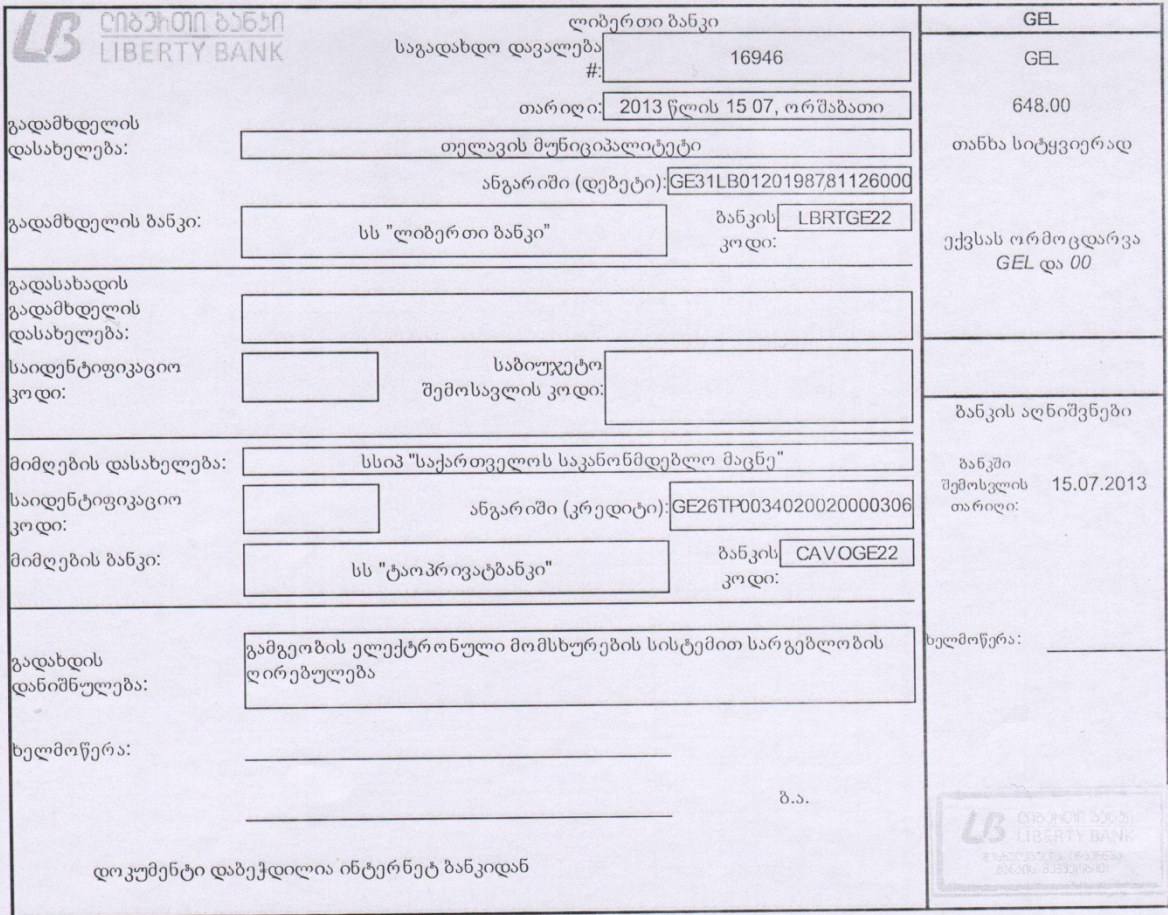 ლიბერთი ბანკი
LIBERTY BANK
ლიბერთი ბანკი
საგადახდო დავალება
#:
16946
თარიღი:
2013 წლის 15 07, ორშაბათი
გადამხდელის
დასახელება:
თელავის მუნიციპალიტეტი
ანგარიში (დებეტი):
GE31LB0120198781126000
გადამხდელის ბანკი:
სს "ლიბერთი ბანკი"
ბანკის
კოდი:
LBRTGE22
გადასახადის
გადამხდელის
დასახელება:
საიდენტიფიკაციო
კოდი:
საბიუჯეტო
შემოსავლის კოდი:
მიმღების დასახელება:
სსიპ "საქართველოს საკანონმდებლო მაცნე"
საიდენტიფიკაციო
კოდი:
ანგარიში (კრედიტი):
GE26TP0034020020000306
მიმღების ბანკი:
სს "ტაოპრივატბანკი"
ბანკის
კოდი:
CAVOGE22
გადახდის
დანიშნულება:
გამგეობის ელექტრონული მომსხურების სისტემით სარგებლობის
ღირებულება
ხელმოწერა:
ბ.ა.
დოკუმენტი დაბეჭდილია ინტერნეტ ბანკიდან
GEL
GEL
648.00
თანხა სიტყვიერად
ექვსას ორმოცდარვა
GEL და 00
ბანკის აღნიშვნები
ბანკში
შემოსვლის
თარიღი:
15.07.2013
ხელმოწერა:
ლიბერთი ბანკი
LIBERTY BANK